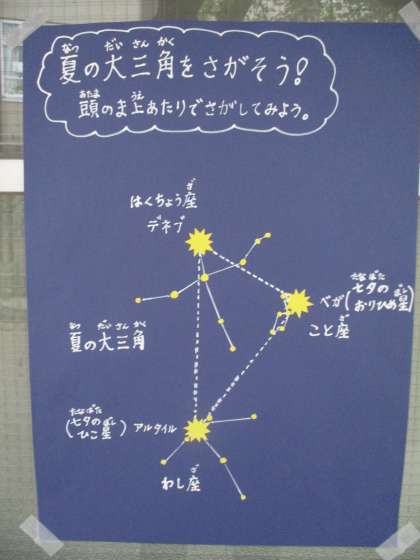 夏の大三角をさがそう!
頭のま上あたりでさがしてみよう。
はくちょう座
デネブ
ベガ(七夕のおりひめ星)
こと座
夏の大三角
(七夕のひこ星) アルタイル
わし座